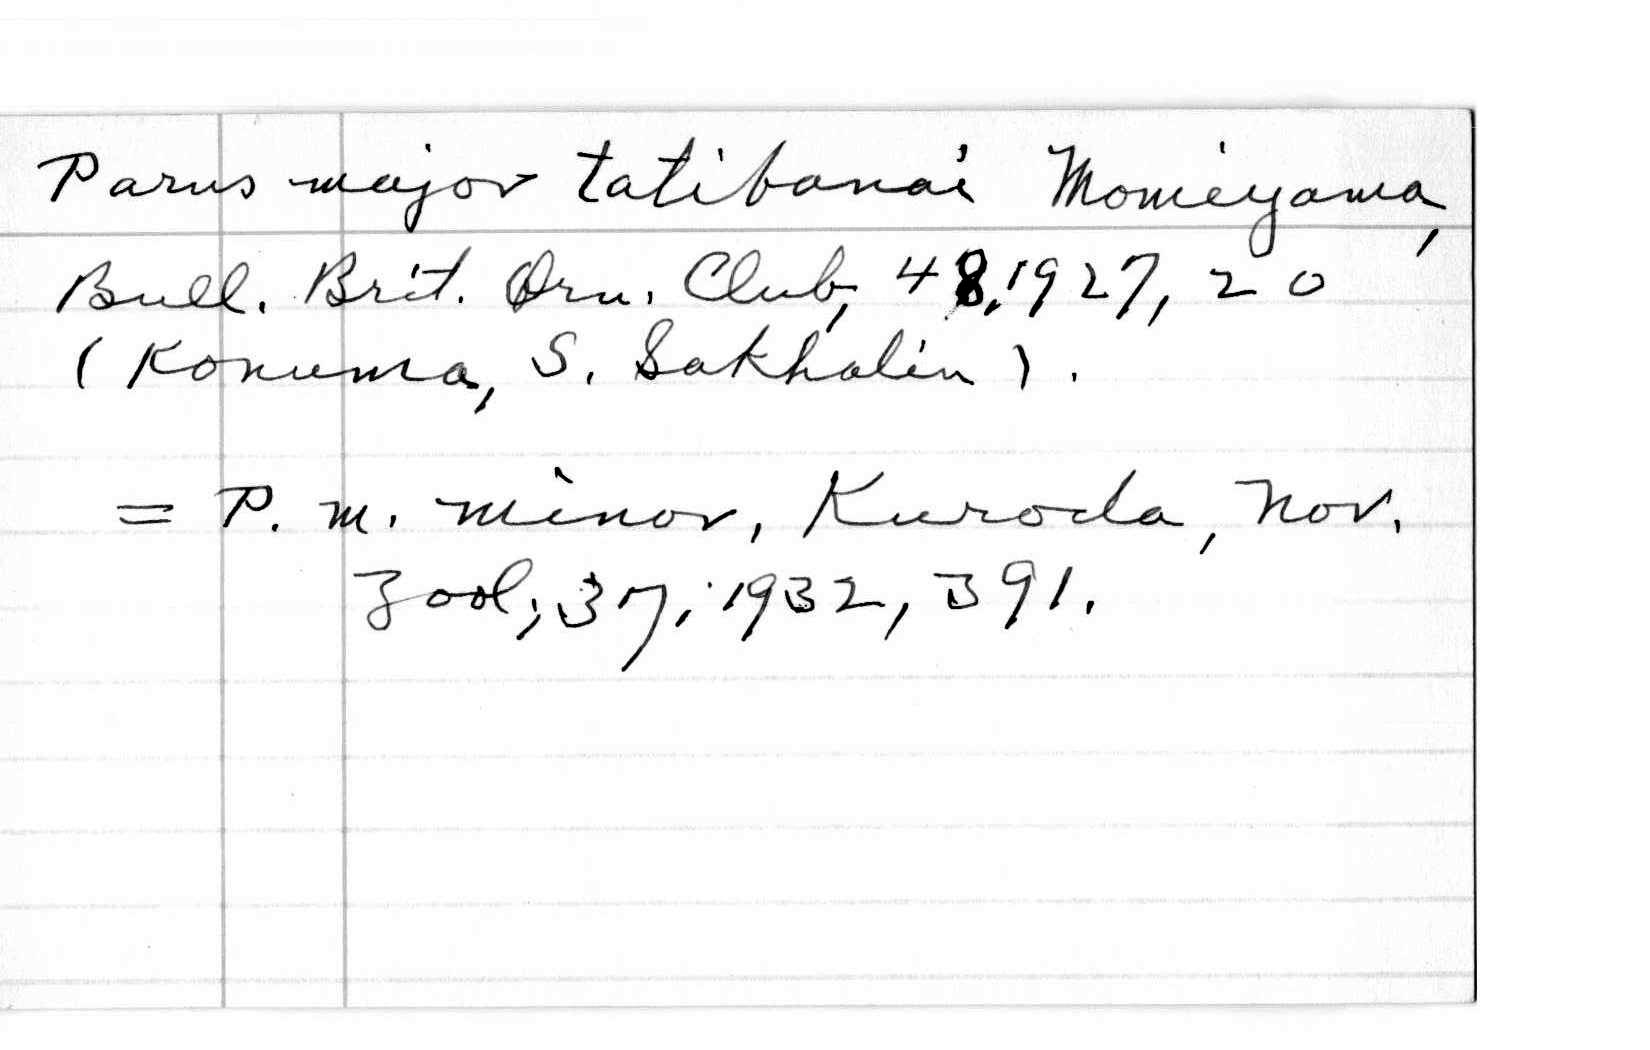 Parus major tatibanai Momiyama,
Bull. Brit. Orn. Club, 48, 1927, 20
(Konuma, S. Sakhalin).
= P. m. minor, Kuroda, Nov.
Zool., 37, 1932, 391.